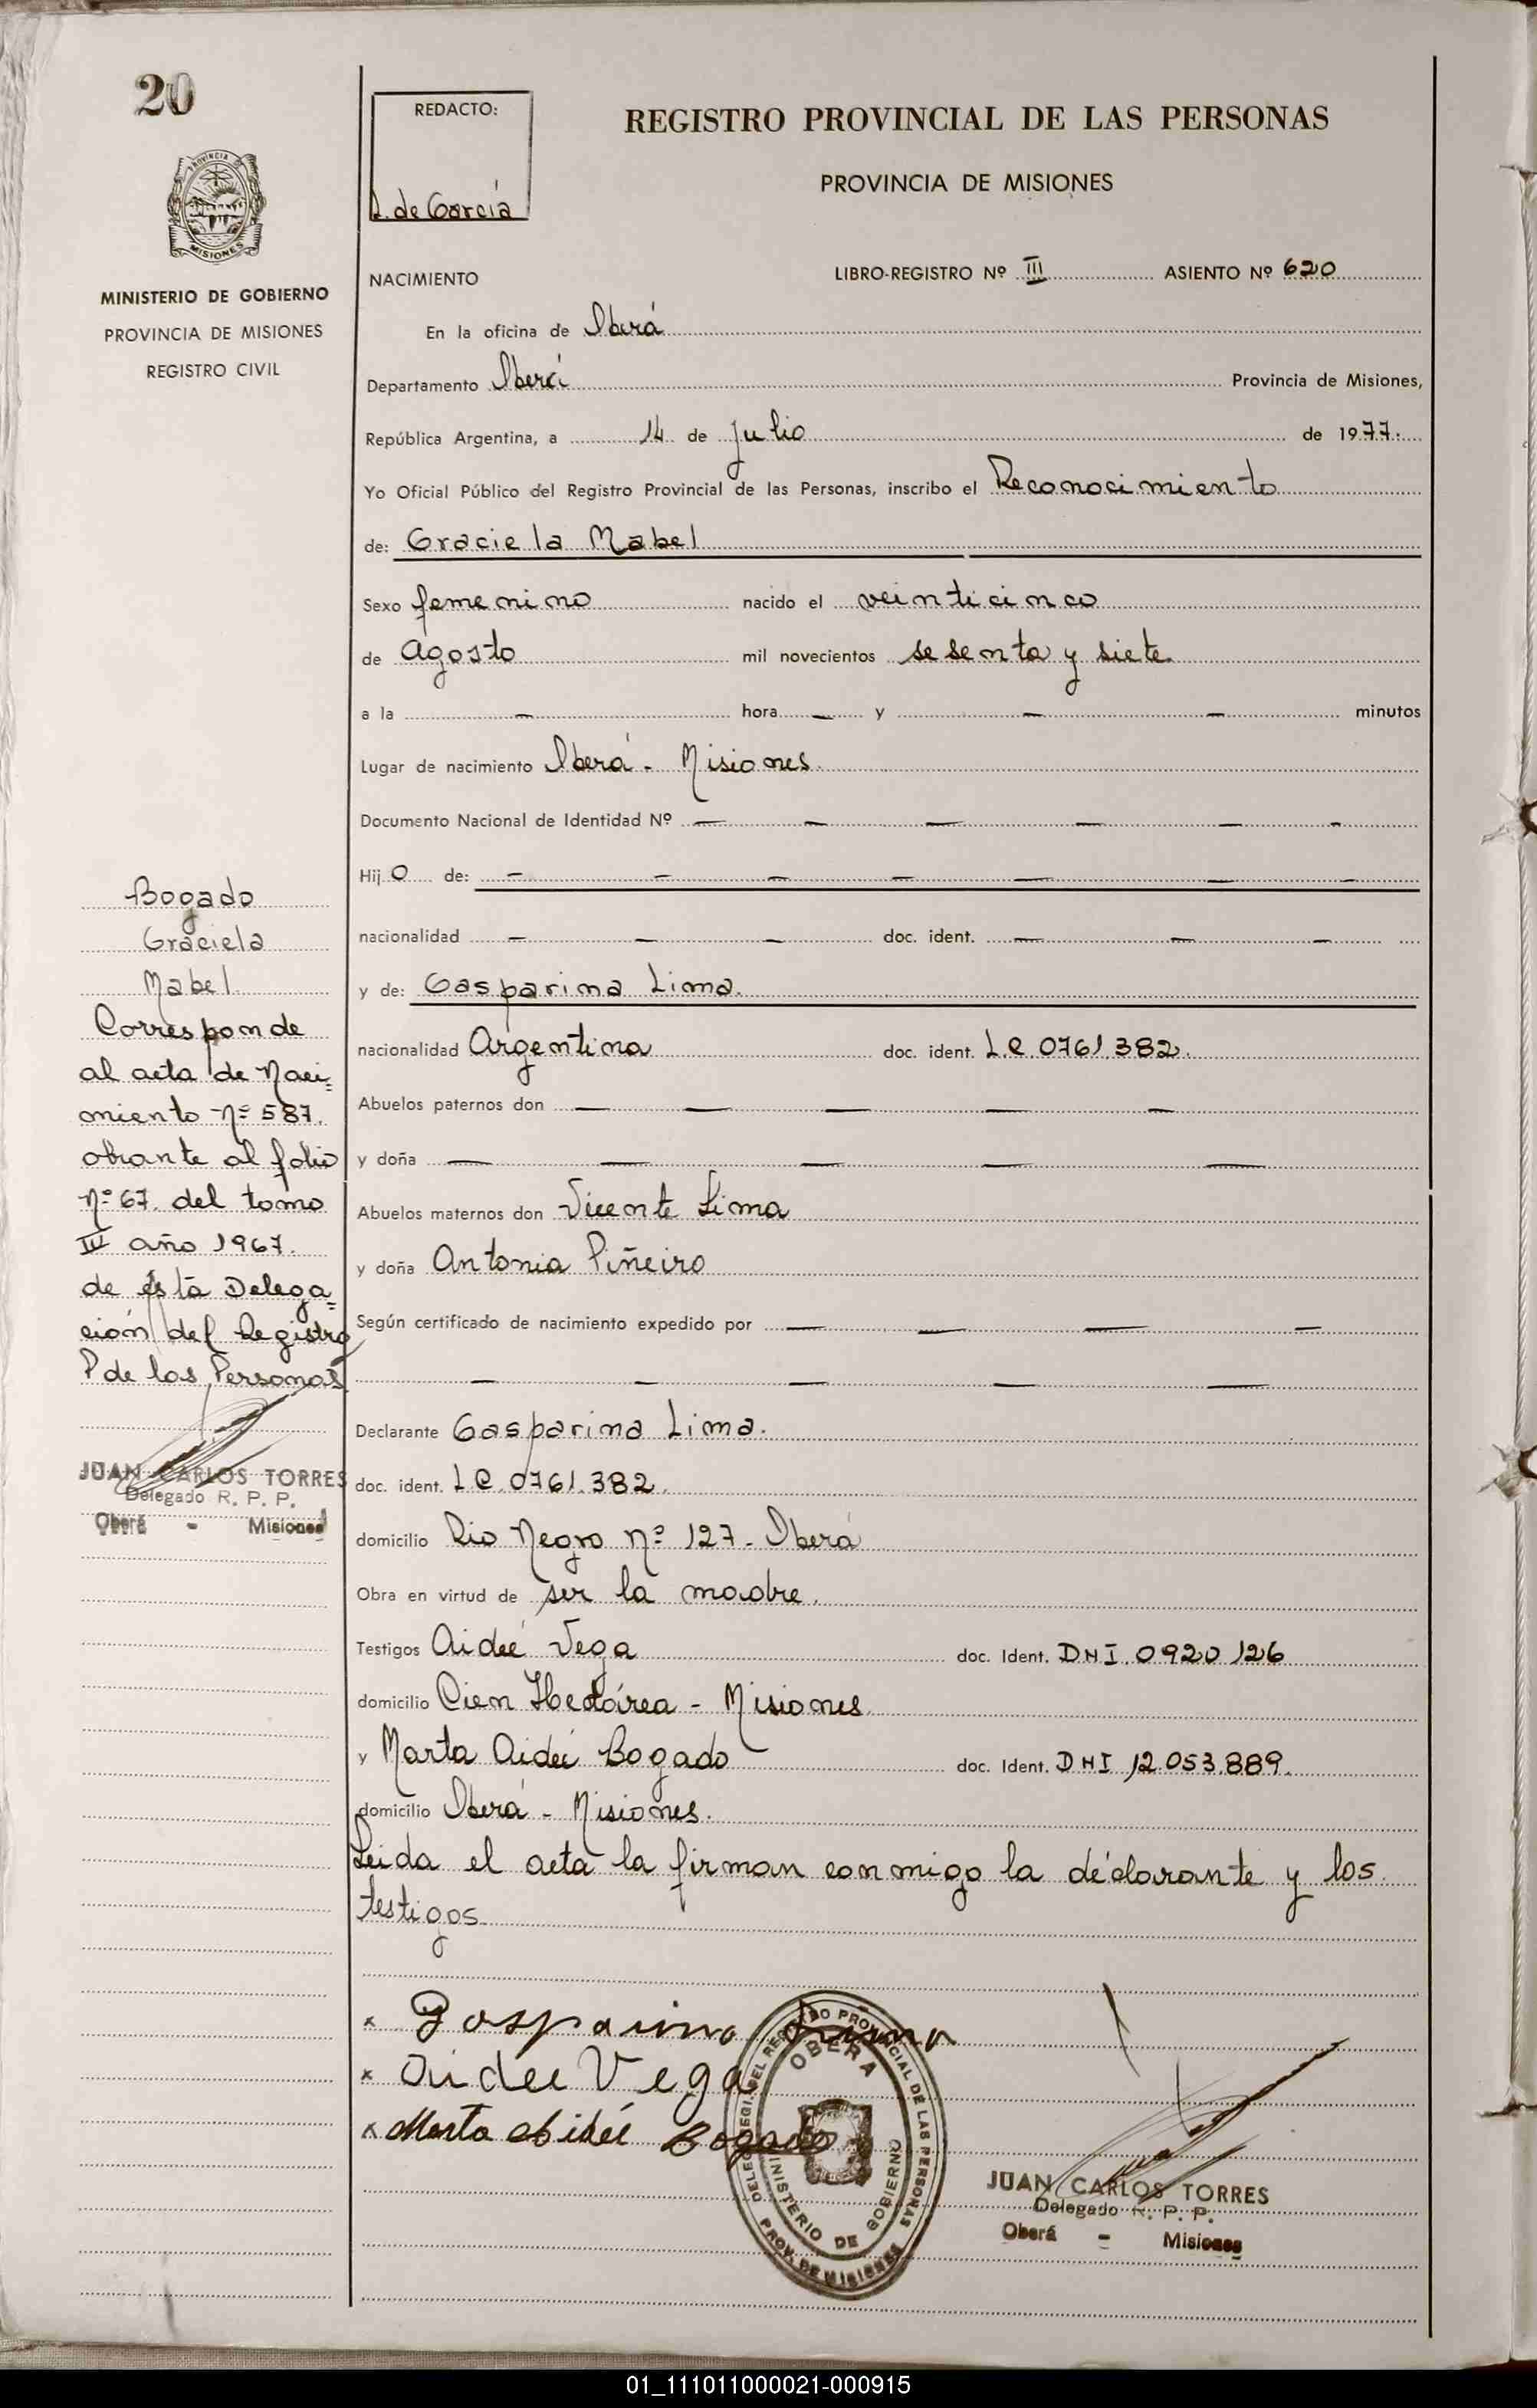 20
PROVINCIA DE
MISIONES
MINISTERIO DE GOBIERNO
PROVINCIA DE MISIONES
REGISTRO CIVIL
REDACTO:
R. de García
REGISTRO PROVINCIAL DE LAS PERSONAS
PROVINCIA DE MISIONES
NACIMIENTO LIBRO-REGISTRO Nº III ASIENTO Nº 620
En la oficina de Oberá
Departamento Oberá Provincia de Misiones,
República Argentina, a 14 de Julio de 1977.
Yo Oficial Público del Registro Provincial de las Personas, inscribo el Reconocimiento
de: Graciela Mabel
Sexo femenino nacido el veinticinco
de Agosto mil novecientos sesenta y siete
a la — hora — y — — minutos
Lugar de nacimiento Oberá - Misiones.
Documento Nacional de Identidad Nº — — — — — —
Hij o de: — — — — — — —
nacionalidad — — — doc. ident. — — —
y de: Gasparina Lima.
nacionalidad Argentina doc. ident. L.C. 0761.382.
Abuelos paternos don — — — — —
y doña — — — — —
Abuelos maternos don Vicente Lima
y doña Antonia Piñeiro
Según certificado de nacimiento expedido por — — — —
— — — — —
Declarante Gasparina Lima.
doc. ident. L.C. 0761.382.
domicilio Rio Negro Nº 127 - Oberá
Obra en virtud de ser la madre.
Testigos Aideé Vega doc. Ident. DNI. 0920126
domicilio Cien Hectárea - Misiones.
y Marta Aideé Bogado doc. Ident. DNI 12.053.889.
domicilio Oberá - Misiones.
Leida el acta la firman conmigo la declarante y los
testigos.
x Gasparina Lima
x Aidee Vega
x Marta Aideé Bogado
DELEG. REGI. DEL REGISTRO PROVINCIAL DE LAS PERSONAS
OBERA
MINISTERIO DE GOBIERNO
PROV. DE MISIONES
JUAN CARLOS TORRES
Delegado R. P. P.
Oberá - Misiones
Bogado
Graciela
Mabel.
Corresponde
al acta de Naci=
miento Nº 587.
obrante al folio
Nº 67. del tomo
III año 1967.
de ésta Delega=
ción del Registro
P de las Personas
JUAN CARLOS TORRES
Delegado R. P. P.
Oberá - Misiones
01_111011000021-000915